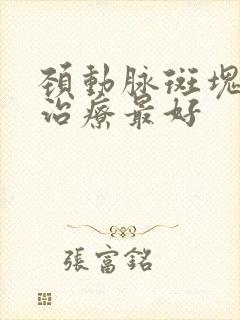 頚動脉斑塊
治療最好
張富銘